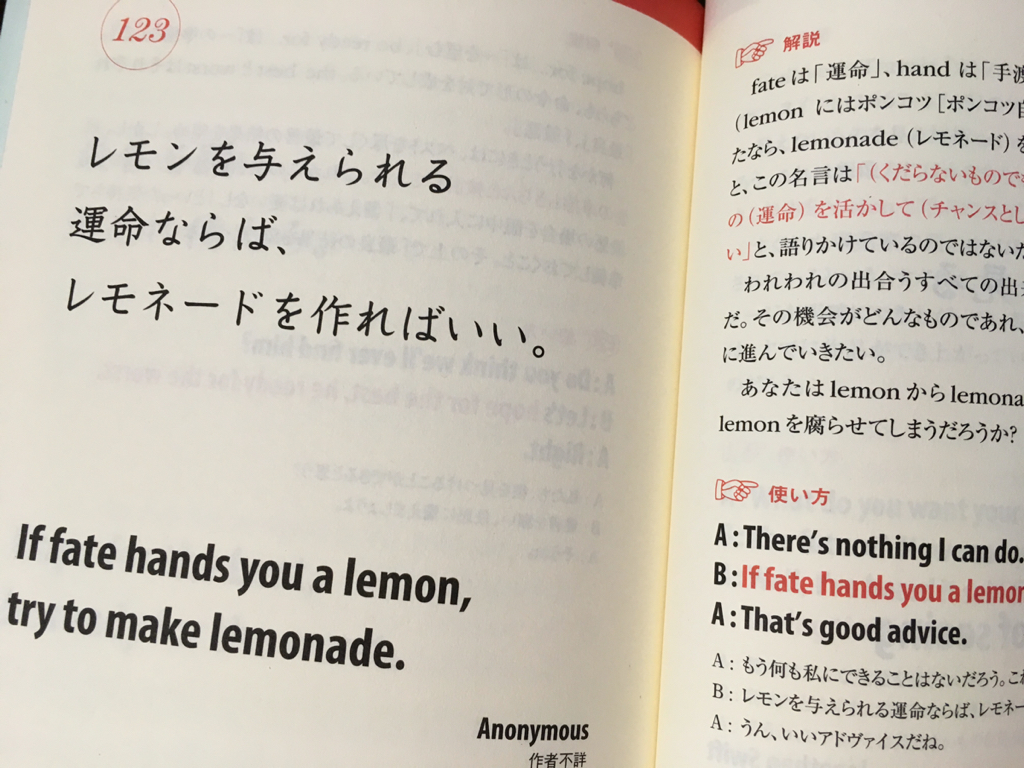 123
レモンを与えられる
運命ならば、
レモネードを作ればいい。
If fate hands you a lemon,
try to make lemonade.
Anonymous
作者不詳
解説
fateは「運命」、handは「手渡
(lemon にはポンコツ[ポンコツ自
たなら、lemonade (レモネード) を
と、この名言は「(くだらないもので
の (運命) を活かして (チャンスとし
い」と、語りかけているのではないだ
われわれの出合うすべての出来
だ。その機会がどんなものであれ、
に進んでいきたい。
あなたは lemon から lemona
lemon を腐らせてしまうだろうか?
使い方
A : There's nothing I can do.
B : If fate hands you a lemon
A : That's good advice.
A : もう何も私にできることはないだろう。これ
B : レモンを与えられる運命ならば、レモネー
A : うん、いいアドヴァイスだね。